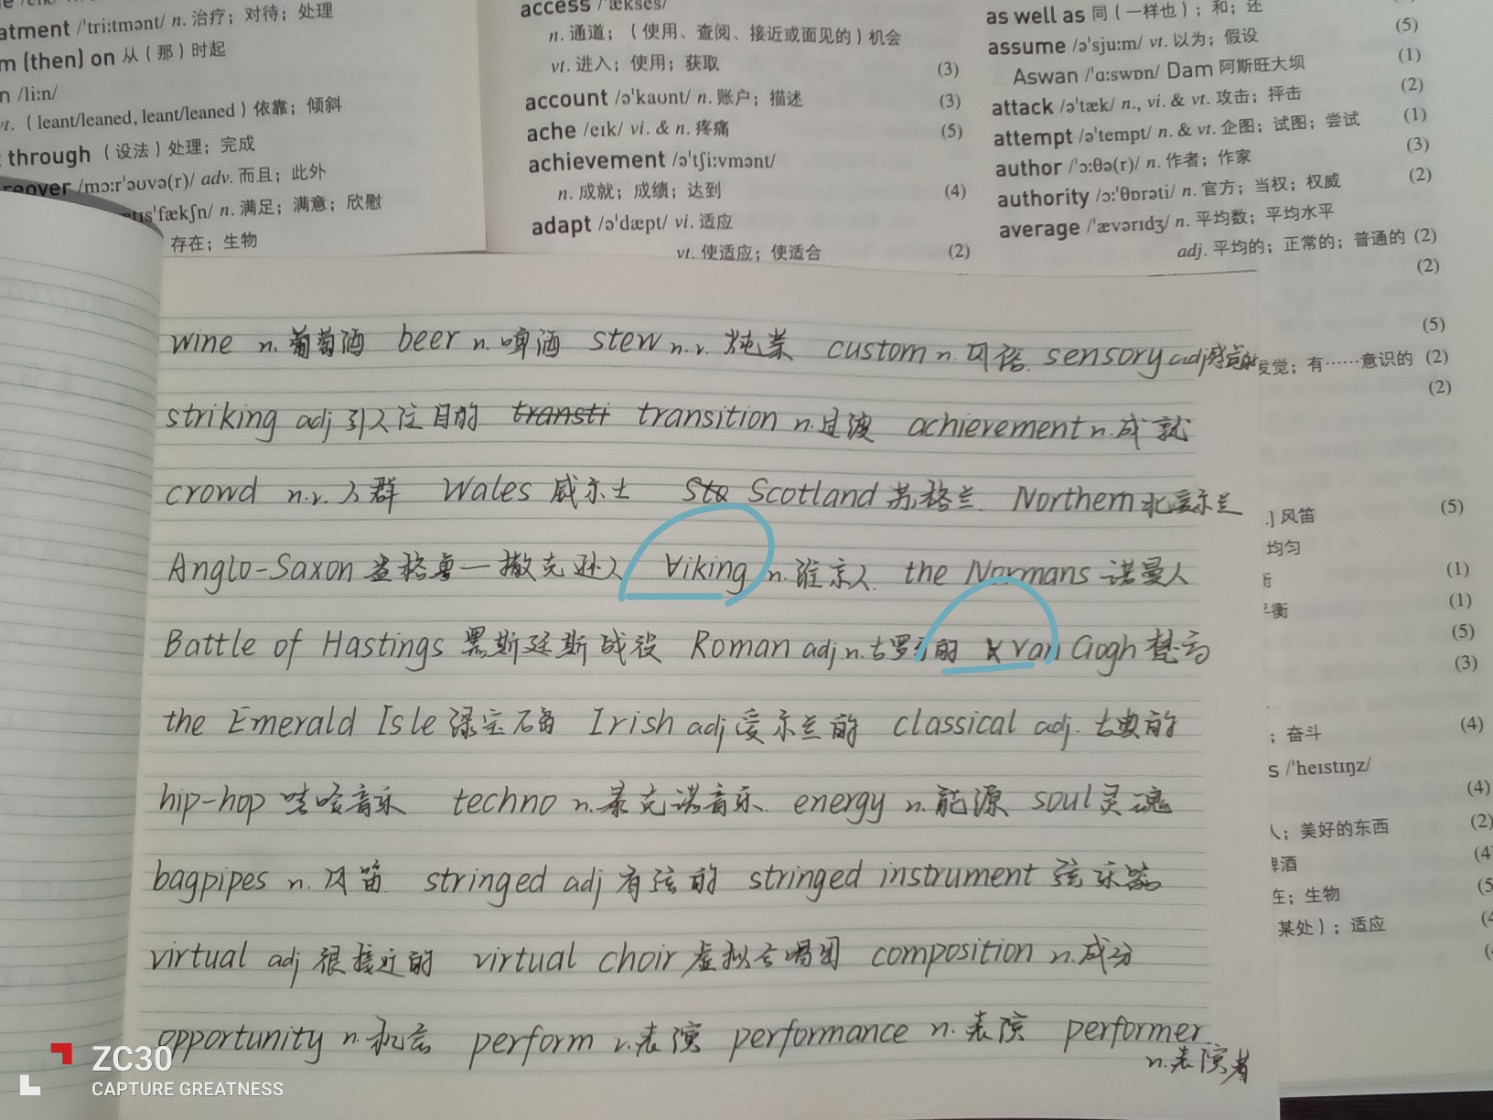 /eɪk/
atment /'tri:tmənt/ n. 治疗；对待；处理
m (then) on 从（那）时起
n /li:n/
vt. (leant/leaned, leant/leaned) 依靠；倾斜
through （设法）处理；完成
reover /mɔ:r'əʊvə(r)/ adv. 而且；此外
tɪs'fækʃn/ n. 满足；满意；欣慰
存在；生物
access /'ækses/
n. 通道；（使用、查阅、接近或面见的）机会
vt. 进入；使用；获取 (3)
account /ə'kaʊnt/ n. 账户；描述 (3)
ache /eɪk/ vi. & n. 疼痛 (5)
achievement /ə'tʃi:vmənt/
n. 成就；成绩；达到 (4)
adapt /ə'dæpt/ vi. 适应
vt. 使适应；使适合 (2)
as well as 同（一样也）；和；还
(5)
assume /ə'sju:m/ vt. 以为；假设
(1)
Aswan /'ɑ:swɒn/ Dam 阿斯旺大坝
(2)
attack /ə'tæk/ n., vi. & vt. 攻击；抨击
(1)
attempt /ə'tempt/ n. & vt. 企图；试图；尝试
(3)
author /'ɔ:θə(r)/ n. 作者；作家
(2)
authority /ɔ:'θɒrəti/ n. 官方；当权；权威
average /'ævərɪdʒ/ n. 平均数；平均水平
adj. 平均的；正常的；普通的 (2)
(2)
(5)
发觉；有……意识的 (2)
(2)
wine n. 葡萄酒 beer n. 啤酒 stew n.v. 炖菜 custom n. 风俗 sensory adj 感觉的
striking adj 引人注目的 transti transition n. 过渡 achievement n. 成就
crowd n.v. 人群 Wales 威尔士 Sto Scotland 苏格兰 Northern 北爱尔兰
Anglo-Saxon 盎格鲁—撒克逊人 Viking n. 维京人 the Normans 诺曼人
Battle of Hastings 黑斯廷斯战役 Roman adj n. 古罗马的 Van Gogh 梵高
the Emerald Isle 绿宝石岛 Irish adj 爱尔兰的 classical adj. 古典的
hip-hop 嘻哈音乐 techno n. 泰克诺音乐 energy n. 能源 soul 灵魂
bagpipes n. 风笛 stringed adj 有弦的 stringed instrument 弦乐器
virtual adj 很接近的 virtual choir 虚拟合唱团 composition n. 成分
opportunity n. 机会 perform v. 表演 performance n. 表演 performer
n. 表演者
] 风笛 (5)
均匀
衡 (1)
平衡 (1)
(5)
(3)
；奋斗 (4)
s /'heɪstɪŋz/
(4)
人；美好的东西 (2)
啤酒 (4
在；生物 (5
某处）；适应 (4
ZC30
CAPTURE GREATNESS